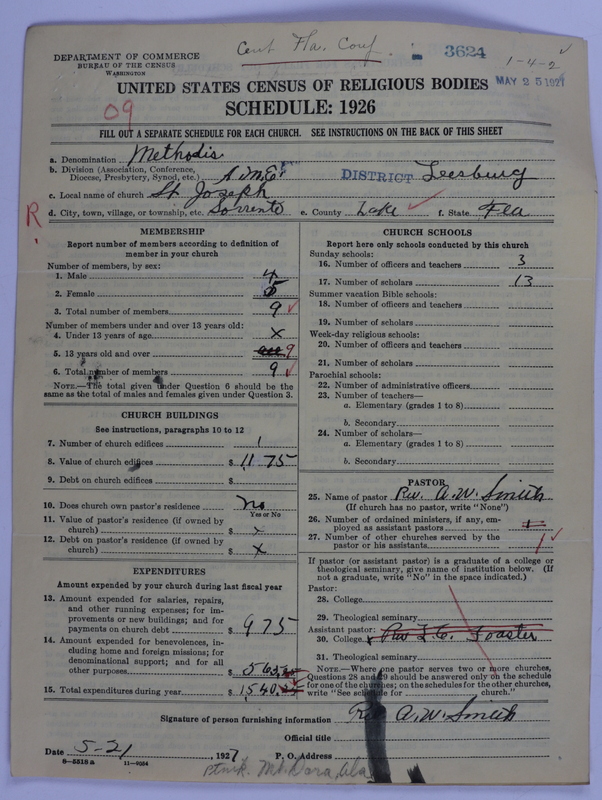 Cent Fla. Conf. 3624 1-4-2
DEPARTMENT OF COMMERCE
BUREAU OF THE CENSUS
WASHINGTON
MAY 25 1927
UNITED STATES CENSUS OF RELIGIOUS BODIES
SCHEDULE: 1926
09
FILL OUT A SEPARATE SCHEDULE FOR EACH CHURCH. SEE INSTRUCTIONS ON THE BACK OF THIS SHEET
a. Denomination Methodis
b. Division (Association, Conference, Diocese, Presbytery, Synod, etc.) A.M.E. DISTRICT Leesburg
c. Local name of church St Joseph
R. d. City, town, village, or township, etc. Sorrento e. County Lake f. State Fla
MEMBERSHIP
Report number of members according to definition of
member in your church
Number of members, by sex:
1. Male 4
2. Female 5
3. Total number of members 9
Number of members under and over 13 years old:
4. Under 13 years of age x
5. 13 years old and over 9
6. Total number of members 9
NOTE.—The total given under Question 6 should be the
same as the total of males and females given under Question 3.
CHURCH BUILDINGS
See instructions, paragraphs 10 to 12
7. Number of church edifices 1
8. Value of church edifices $ 1175
9. Debt on church edifices $
10. Does church own pastor's residence No
Yes or No
11. Value of pastor's residence (if owned by
church) $ x
12. Debt on pastor's residence (if owned by
church) $ x
EXPENDITURES
Amount expended by church during last fiscal year
13. Amount expended for salaries, repairs,
and other running expenses; for im-
provements or new buildings; and for
payments on church debt $ 975
14. Amount expended for benevolences, in-
cluding home and foreign missions; for
denominational support; and for all
other purposes $ 565
15. Total expenditures during year $ 1,540
CHURCH SCHOOLS
Report here only schools conducted by this church
Sunday schools:
16. Number of officers and teachers 3
17. Number of scholars 13
Summer vacation Bible schools:
18. Number of officers and teachers
19. Number of scholars
Week-day religious schools:
20. Number of officers and teachers
21. Number of scholars
Parochial schools:
22. Number of administrative officers
23. Number of teachers—
a. Elementary (grades 1 to 8)
b. Secondary
24. Number of scholars—
a. Elementary (grades 1 to 8)
b. Secondary
PASTOR
25. Name of pastor Rev. A.W. Smith
(If church has no pastor, write "None")
26. Number of ordained ministers, if any, em-
ployed as assistant pastors
27. Number of other churches served by the
pastor or his assistants 1
If pastor (or assistant pastor) is a graduate of a college or
theological seminary, give name of institution below. (If
not a graduate, write "No" in the space indicated.)
Pastor:
28. College
29. Theological seminary
Assistant pastor:
30. College Rev I.C. Foaster
31. Theological seminary
NOTE.—Where one pastor serves two or more churches,
Questions 28 and 29 should be answered only on the schedule
for one of the churches; on the schedules for the other churches,
write "See schedule for church."
Signature of person furnishing information Rev A.W. Smith
Official title
Date 5-21, 1927 P. O. Address
8-5518a 11-9054
Mt. Dora, Fla